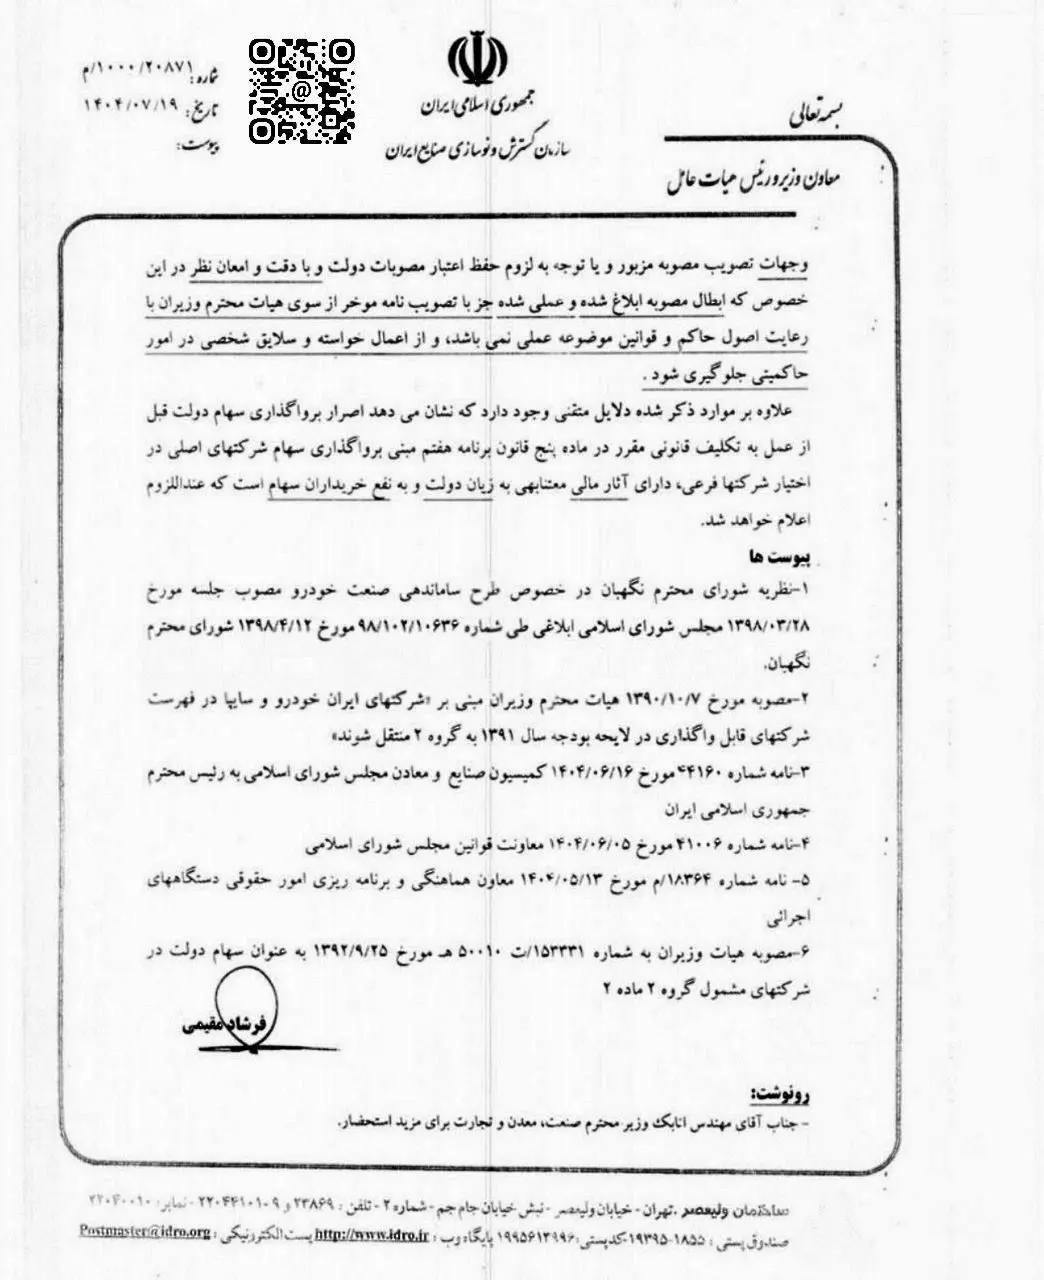 بسمه تعالی
جمهوری اسلامی ایران
سازمان گسترش و نوسازی صنایع ایران
معاون وزیر و رئیس هیات عامل
شماره: ۱۰۰۰/۲۰۸۷۱/م
تاریخ: ۱۴۰۴/۰۷/۱۹
پیوست:
@
وجهات تصویب مصوبه مزبور و یا توجه به لزوم حفظ اعتبار مصوبات دولت و با دقت و امعان نظر در این
خصوص که ابطال مصوبه ابلاغ شده و عملی شده جز با تصویب نامه موخر از سوی هیات محترم وزیران با
رعایت اصول حاکم و قوانین موضوعه عملی نمی باشد، و از اعمال خواسته و سلایق شخصی در امور
حاکمیتی جلوگیری شود .
علاوه بر موارد ذکر شده دلایل متقنی وجود دارد که نشان می دهد اصرار برواگذاری سهام دولت قبل
از عمل به تکلیف قانونی مقرر در ماده پنج قانون برنامه هفتم مبنی برواگذاری سهام شرکتهای اصلی در
اختیار شرکتها فرعی، دارای آثار مالی معتنابهی به زیان دولت و به نفع خریداران سهام است که عنداللزوم
اعلام خواهد شد.
پیوست ها
۱-نظریه شورای محترم نگهبان در خصوص طرح ساماندهی صنعت خودرو مصوب جلسه مورخ
۱۳۹۸/۰۳/۲۸ مجلس شورای اسلامی ابلاغی طی شماره ۹۸/۱۰۲/۱۰۶۳۶ مورخ ۱۳۹۸/۴/۱۲ شورای محترم
نگهبان.
۲-مصوبه مورخ ۱۳۹۰/۱۰/۷ هیات محترم وزیران مبنی بر «شرکتهای ایران خودرو و سایپا در فهرست
شرکتهای قابل واگذاری در لایحه بودجه سال ۱۳۹۱ به گروه ۲ منتقل شوند»
۳-نامه شماره ۴۴۱۶۰ مورخ ۱۴۰۴/۰۶/۱۶ کمیسیون صنایع و معادن مجلس شورای اسلامی به رئیس محترم
جمهوری اسلامی ایران
۴-نامه شماره ۴۱۰۰۶ مورخ ۱۴۰۴/۰۶/۰۵ معاونت قوانین مجلس شورای اسلامی
۵- نامه شماره ۱۸۳۶۴/م مورخ ۱۴۰۴/۰۵/۱۳ معاون هماهنگی و برنامه ریزی امور حقوقی دستگاههای
اجرائی
۶-مصوبه هیات وزیران به شماره ۱۵۳۳۳۱/ت ۵۰۰۱۰ هـ مورخ ۱۳۹۲/۹/۲۵ به عنوان سهام دولت در
شرکتهای مشمول گروه ۲ ماده ۲
فرشاد مقیمی
رونوشت:
- جناب آقای مهندس اتابک وزیر محترم صنعت، معدن و تجارت برای مزید استحضار.
ساختمان ولیعصر .تهران - خیابان ولیعصر - نبش خیابان جام جم - شماره ۲ - تلفن : ۲۳۸۶۹ و ۹-۲۲۰۴۴۱۰۱ - نمابر: ۲۲۰۴۰۰۱۰
صندوق پستی : ۱۸۵۵-۱۹۳۹۵-کدپستی: ۱۹۹۵۶۱۳۹۹۶ پایگاه وب : http://www.idro.ir پست الکترونیکی : Postmaster@idro.org